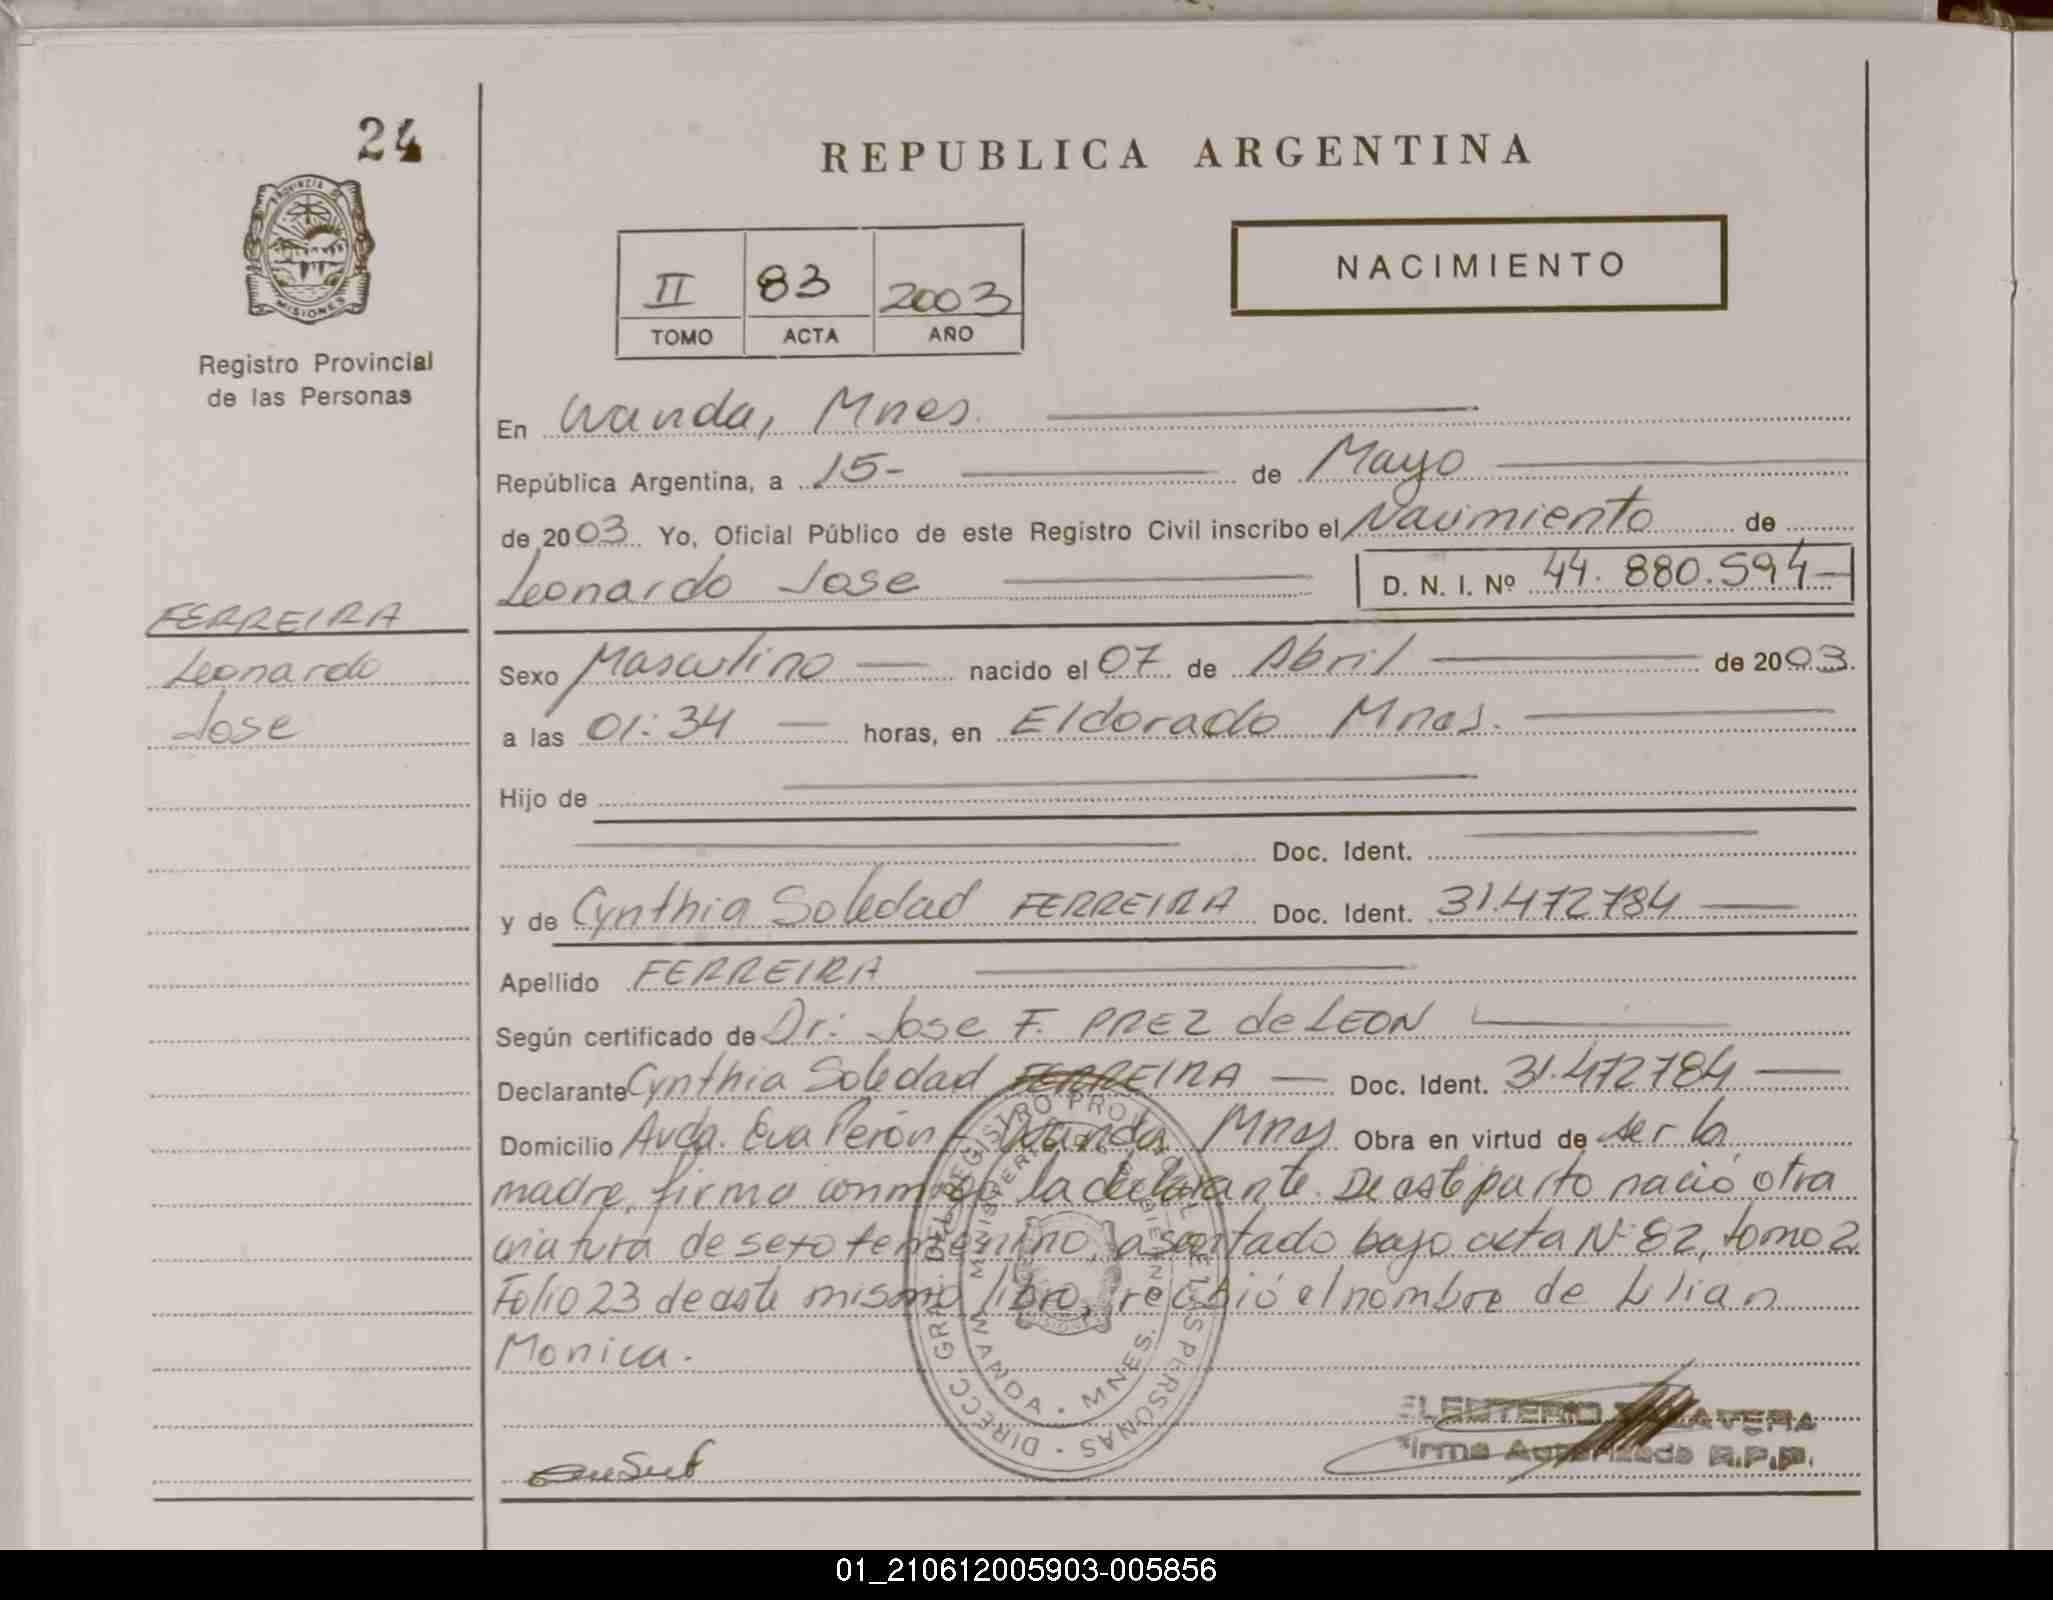 24
PROVINCIA DE
MISIONES
Registro Provincial
de las Personas
FERREIRA
Leonardo
Jose
REPUBLICA ARGENTINA
II 83 2003
TOMO ACTA AÑO
NACIMIENTO
En Wanda, Mnes.
República Argentina, a 15- de Mayo
de 2003. Yo, Oficial Público de este Registro Civil inscribo el Nacimiento de
Leonardo Jose D. N. I. Nº 44.880.594
Sexo Masculino nacido el 07 de Abril de 2003.
a las 01:34 horas, en Eldorado Mnes.
Hijo de
Doc. Ident.
y de Cynthia Soledad FERREIRA Doc. Ident. 31.472784
Apellido FERREIRA
Según certificado de Dr: Jose F. PREZ de LEON
Declarante Cynthia Soledad FERREIRA Doc. Ident. 31.472784
Domicilio Avda. Eva Perón - Wanda, Mnes Obra en virtud de ser la
madre, firma conmigo la declarante. De este parto nació otra
criatura de sexo femenino, asentado bajo acta Nº 82, tomo 2
Folio 23 de este mismo libro, recibió el nombre de Lilian
Monica.
DIRECC. GRAL. DEL REGISTRO PROVINCIAL DE LAS PERSONAS
WANDA - MNES.
Firma Autorizada R.P.P.
01_210612005903-005856